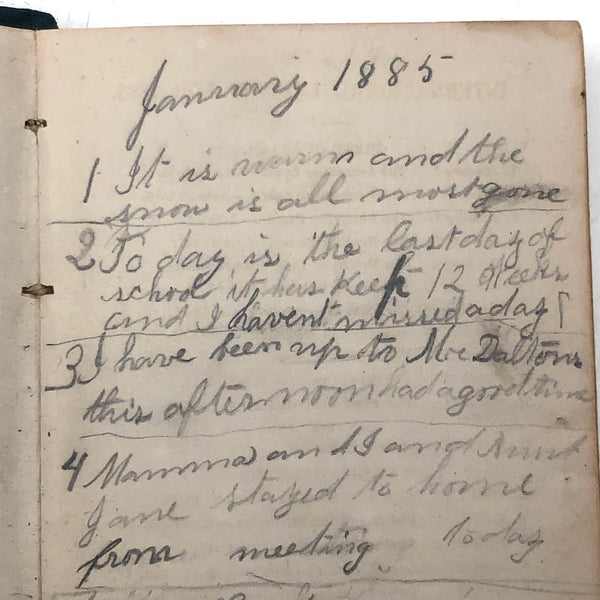 January 1885
1 It is warm and the
snow is all most gone
2 To day is the last day of
school it has Kept 12 Weeks
and I havent missed a day
3 I have been up to Mr Daltons
this after noon had a good time
4 Mamma and I and Aunt
Jane stayed to home
from meeting today